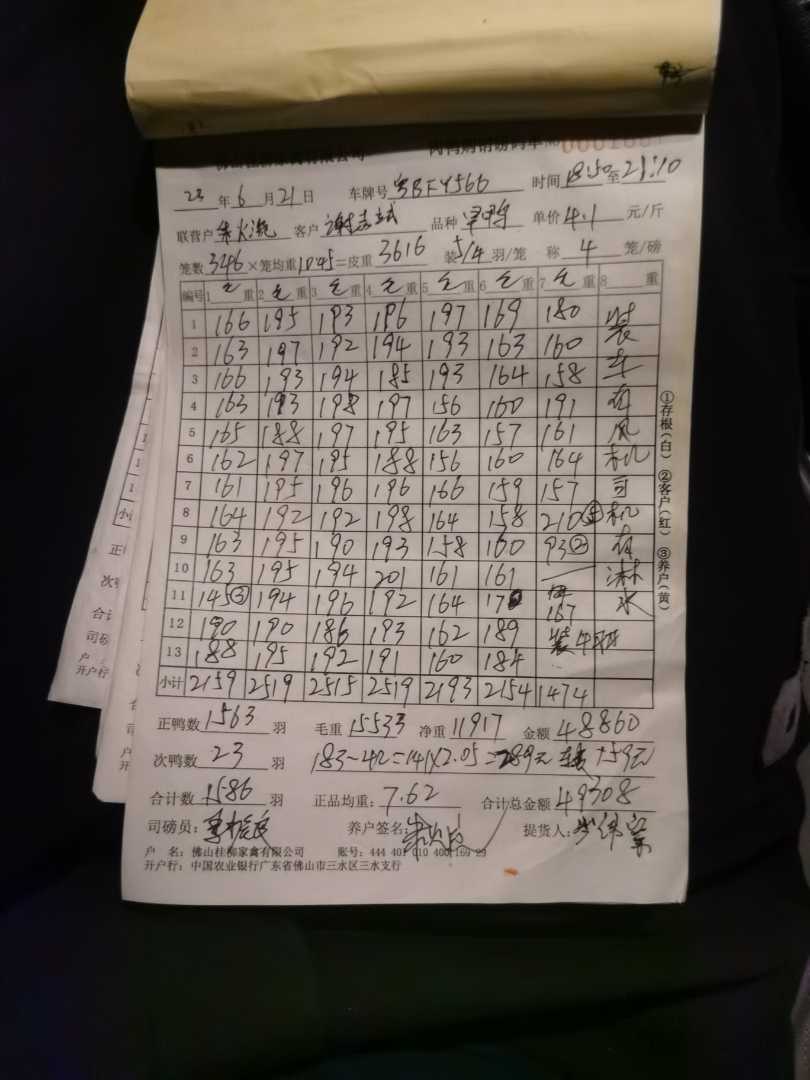 肉鸭购销磅码单 №
23 年 6 月 21 日 车牌号 粤BFY566 时间 18:50 至 21:10
联营户 客户 谢志斌 品种 单价 4.1 元/斤
笼数 346 ×笼均重 1045 =皮重 3616 装 5/4 羽/笼 称 4 笼/磅
编号 1 毛 重 2 毛 重 3 毛 重 4 毛 重 5 毛 重 6 毛 重 7 毛 重 8 重
1 166 195 193 196 197 169 180 装
2 163 197 192 194 193 163 160 车
3 166 193 194 185 193 164 158 车
4 163 193 198 197 156 160 191 有
5 165 188 197 195 163 157 161 风
6 162 197 195 188 156 160 164 机
7 161 195 196 196 166 159 157 司
8 164 192 192 198 164 158 210⑤ 机
9 163 195 190 193 158 160 93② 有
10 163 195 194 201 161 161 淋
11 145③ 194 196 192 164 167 水
12 190 190 186 193 162 189 装
13 188 195 192 191 160 184
小计 2159 2519 2515 2519 2193 2154 1474
正鸭数 1563 羽 毛重 15533 净重 11917 金额 48860
次鸭数 23 羽 183-42=141×2.05=289元 +159元
合计数 1586 羽 正品均重: 7.62 合计总金额 49308
司磅员: 养户签名: 提货人:
户 名: 佛山桂柳家禽有限公司 账号: 444 401 010 400 169 29
开户行: 中国农业银行广东省佛山市三水区三水支行
①存根(白) ②客户(红) ③养户(黄)